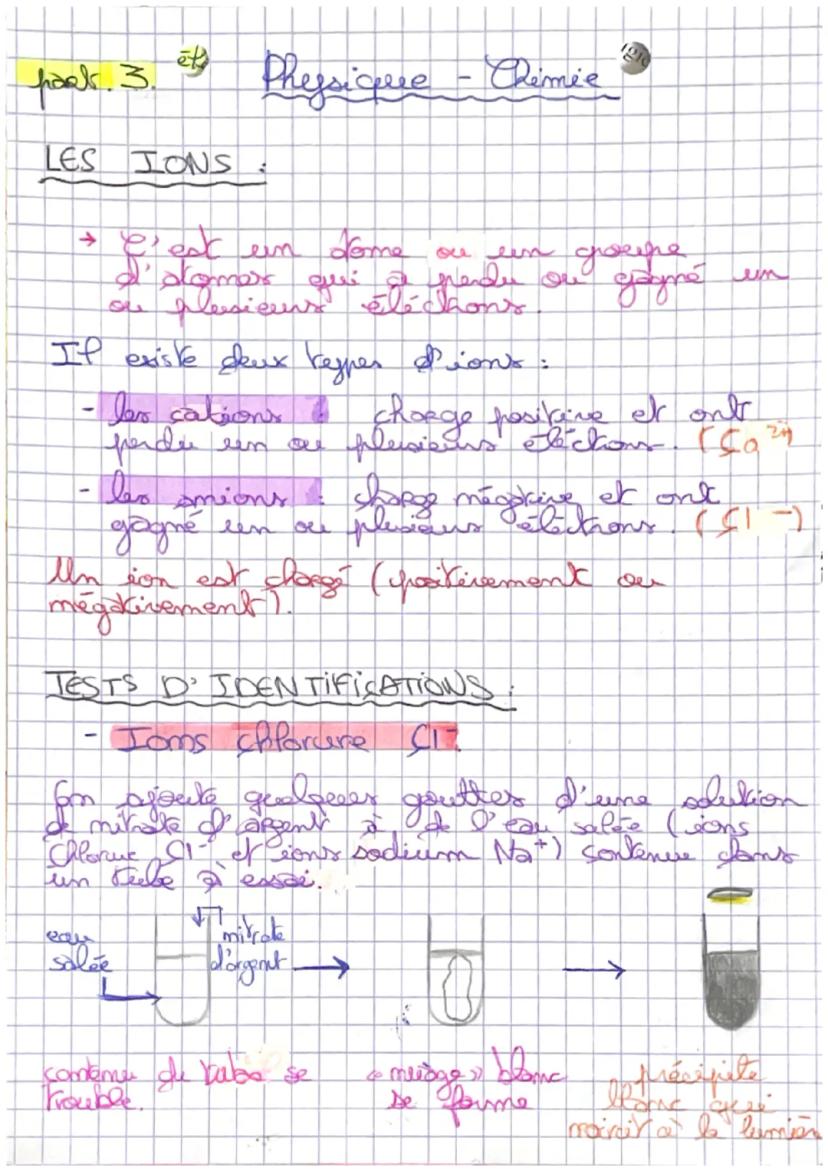 part. 3.
Physique - Chimie
LES IONS :
→ C'est un atome ou un groupe
d'atomes qui a perdu ou gagné un
ou plusieurs éléctrons.
Il existe deux types d'ions :
- les cations : charge positive et ont
perdu un ou plusieurs éléctrons. (Ca²⁺)
- les anions : charge négative et ont
gagné un ou plusieurs éléctrons. (Cl⁻)
Un ion est chargé (positivement ou
négativement).
TESTS D'IDENTIFICATIONS :
- Ions chlorure Cl⁻
On ajoute quelques gouttes d'une solution
de nitrate d'argent à de l'eau salée (ions
Chlorure Cl⁻ et ions sodium Na⁺) contenue dans
un tube à essai.
eau salée
nitrate d'argent
contenu du tube se
trouble.
« nuage » blanc
se forme
précipité
blanc qui
noircit à la lumière